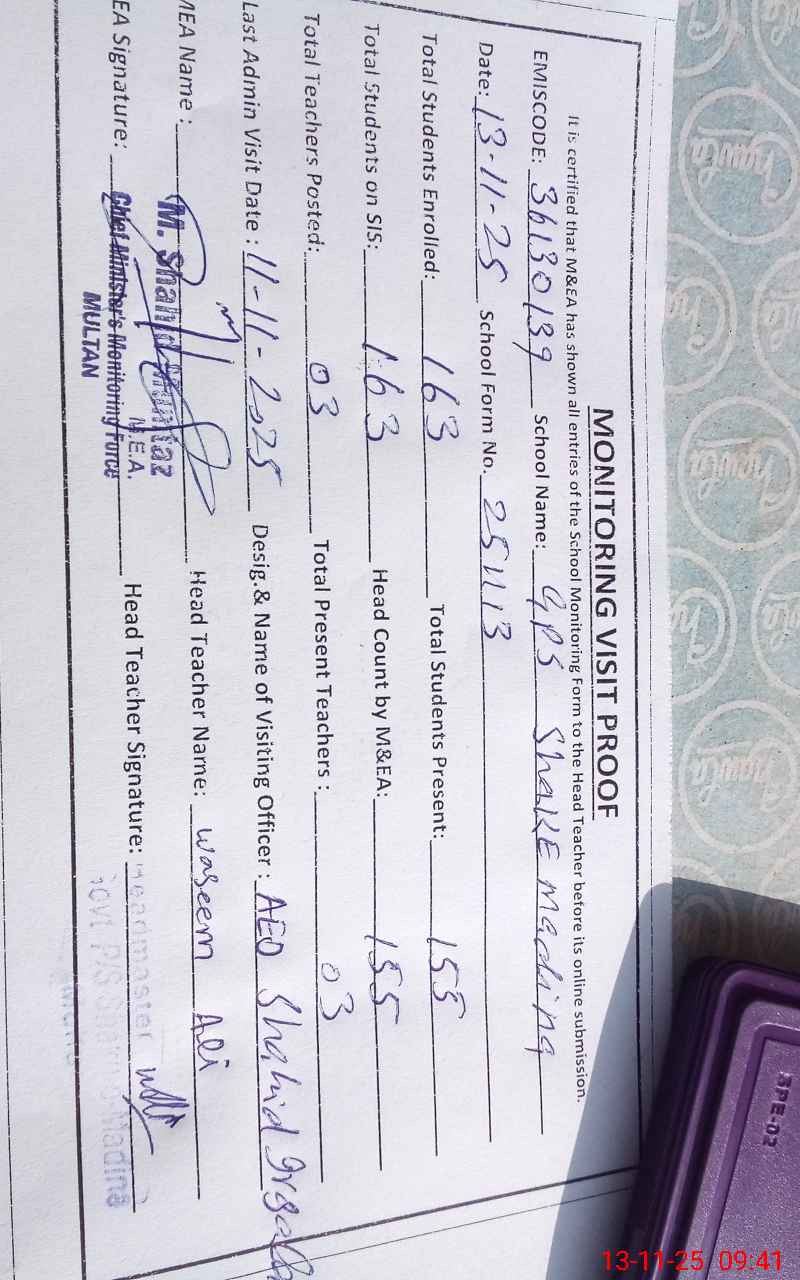 MONITORING VISIT PROOF
It is certified that M&EA has shown all entries of the School Monitoring Form to the Head Teacher before its online submission.
EMISCODE: 36130139 School Name: GPS Shake Madina
Date: 13-11-25 School Form No. 251113
Total Students Enrolled: 163 Total Students Present: 155
Total Students on SIS: 163 Head Count by M&EA: 155
Total Teachers Posted: 03 Total Present Teachers : 03
Last Admin Visit Date : 11-11-2025 Desig.& Name of Visiting Officer : AEO Shahid
MEA Name : M. Shahid Mumtaz Head Teacher Name: waseem Ali
M.E.A.
EA Signature: Chief Minister's Monitoring Force Head Teacher Signature: Headmaster
MULTAN
Govt P/S Madina
SPE-02
13-11-25 09:41